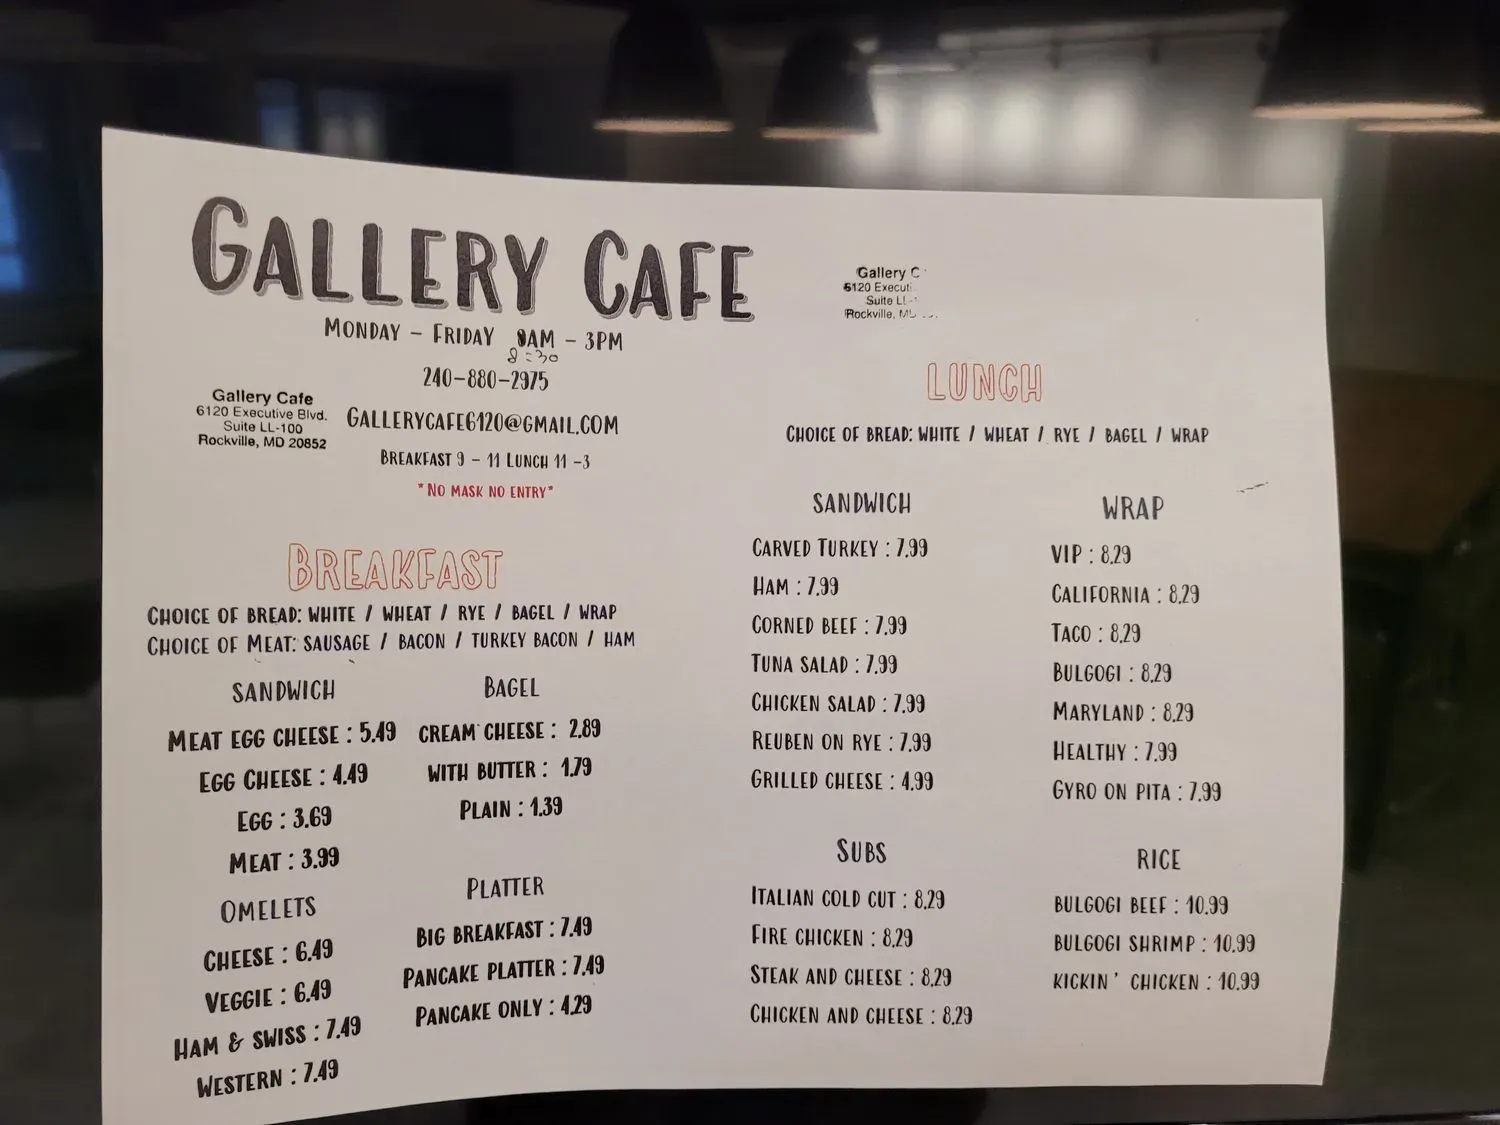 GALLERY CAFE
MONDAY – FRIDAY 9AM – 3PM
8:30
240-880-2975
GALLERYCAFE6120@GMAIL.COM
Gallery Cafe
6120 Executive Blvd.
Suite LL-100
Rockville, MD 20852
BREAKFAST 9 – 11 LUNCH 11 -3
*NO MASK NO ENTRY*
BREAKFAST
CHOICE OF BREAD: WHITE / WHEAT / RYE / BAGEL / WRAP
CHOICE OF MEAT: SAUSAGE / BACON / TURKEY BACON / HAM
SANDWICH
MEAT EGG CHEESE : 5.49
EGG CHEESE : 4.49
EGG : 3.69
MEAT : 3.99
OMELETS
CHEESE : 6.49
VEGGIE : 6.49
HAM & SWISS : 7.49
WESTERN : 7.49
BAGEL
CREAM CHEESE : 2.89
WITH BUTTER : 1.79
PLAIN : 1.39
PLATTER
BIG BREAKFAST : 7.49
PANCAKE PLATTER : 7.49
PANCAKE ONLY : 4.29
Gallery C
6120 Executi
Suite LL-
Rockville, M
LUNCH
CHOICE OF BREAD: WHITE / WHEAT / RYE / BAGEL / WRAP
SANDWICH
CARVED TURKEY : 7.99
HAM : 7.99
CORNED BEEF : 7.99
TUNA SALAD : 7.99
CHICKEN SALAD : 7.99
REUBEN ON RYE : 7.99
GRILLED CHEESE : 4.99
SUBS
ITALIAN COLD CUT : 8.29
FIRE CHICKEN : 8.29
STEAK AND CHEESE : 8.29
CHICKEN AND CHEESE : 8.29
WRAP
VIP : 8.29
CALIFORNIA : 8.29
TACO : 8.29
BULGOGI : 8.29
MARYLAND : 8.29
HEALTHY : 7.99
GYRO ON PITA : 7.99
RICE
BULGOGI BEEF : 10.99
BULGOGI SHRIMP : 10.99
KICKIN' CHICKEN : 10.99